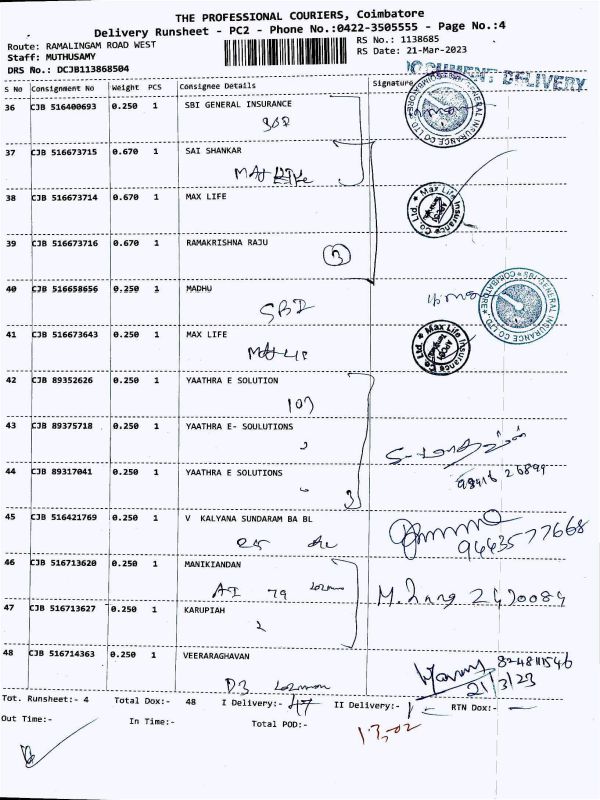 THE PROFESSIONAL COURIERS, Coimbatore
Delivery Runsheet - PC2 - Phone No.:0422-3505555 - Page No.:4
Route: RAMALINGAM ROAD WEST
RS No.: 1138685
Staff: MUTHUSAMY
RS Date: 21-Mar-2023
DRS No.: DCJB113868504
DOCUMENT DELIVERY
S No Consignment No Weight PCS Consignee Details Signature
36 CJB 516400693 0.250 1 SBI GENERAL INSURANCE
308
37 CJB 516673715 0.670 1 SAI SHANKAR
MAx Life
38 CJB 516673714 0.670 1 MAX LIFE
Max Life Insurance Co Ltd
39 CJB 516673716 0.670 1 RAMAKRISHNA RAJU
3
40 CJB 516658656 0.250 1 MADHU
SBI
SBI-GENERAL INSURANCE CO LTD. COIMBATORE
41 CJB 516673643 0.250 1 MAX LIFE
Max Life Insurance Co Ltd
42 CJB 89352626 0.250 1 YAATHRA E SOLUTION
107
43 CJB 89375718 0.250 1 YAATHRA E- SOULUTIONS
44 CJB 89317041 0.250 1 YAATHRA E SOLUTIONS
3
45 CJB 516421769 0.250 1 V KALYANA SUNDARAM BA BL
9443577668
46 CJB 516713620 0.250 1 MANIKIANDAN
79
47 CJB 516713627 0.250 1 KARUPIAH
2
48 CJB 516714363 0.250 1 VEERARAGHAVAN
D3
21/3/23
Tot. Runsheet:- 4 Total Dox:- 48 I Delivery:- 47 II Delivery:- 1 RTN Dox:- —
Out Time:- In Time:- Total POD:-